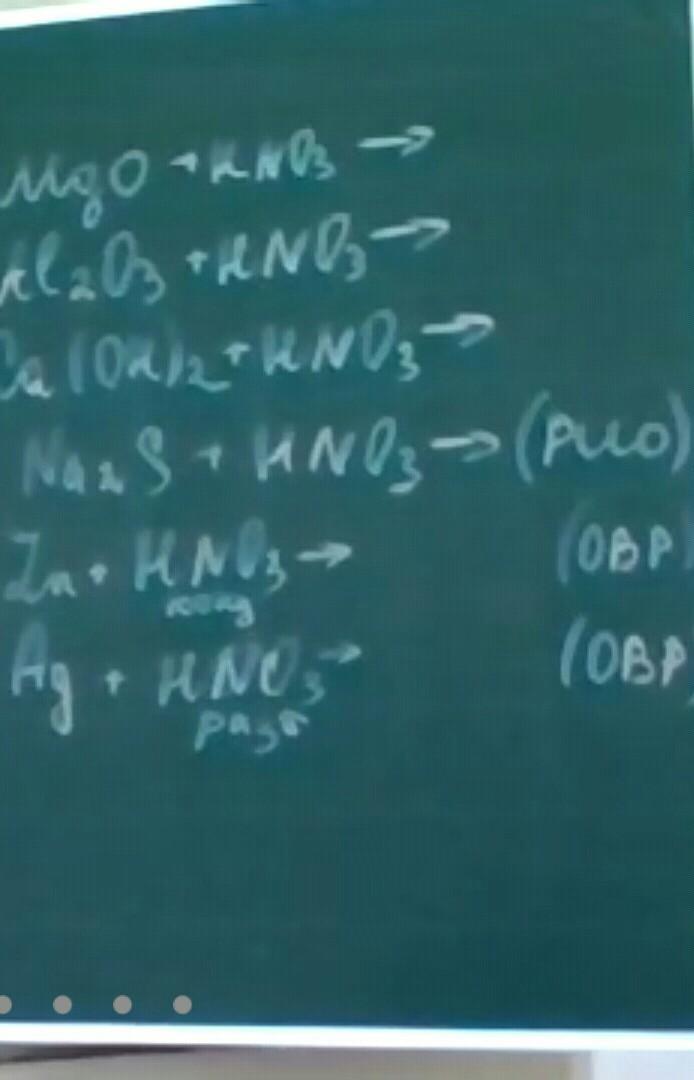 MgO + HNO₃ →
Al₂O₃ + HNO₃ →
Ca(OH)₂ + HNO₃ →
Na₂S + HNO₃ → (РИО)
Zn + HNO₃ → (ОВР)
конц
Ag + HNO₃ → (ОВР)
разб